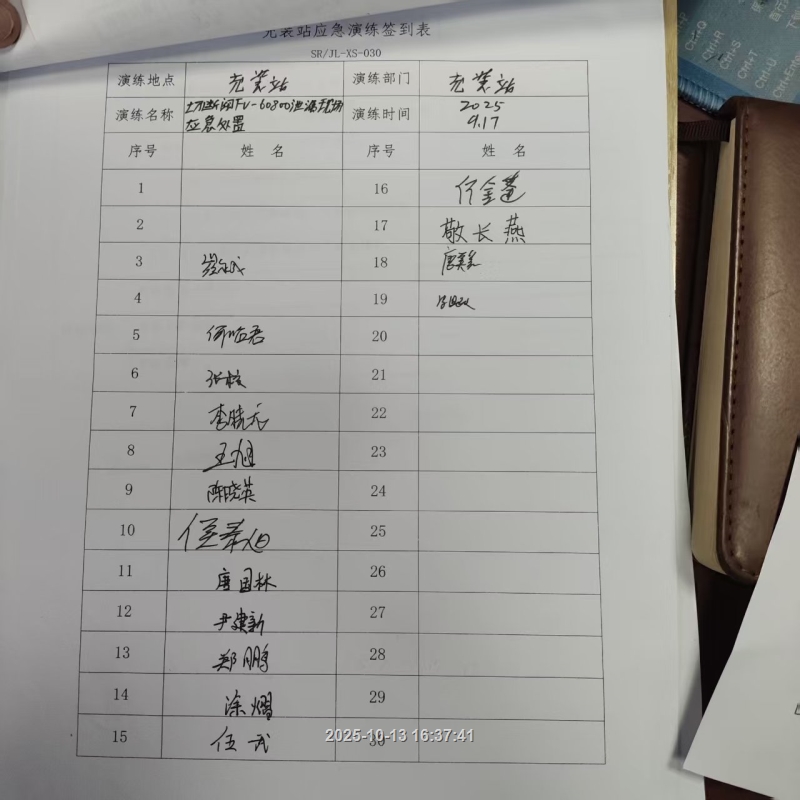 充装站应急演练签到表
SR/JL-XS-030
演练地点 充装站 演练部门 充装站
演练名称 切断阀FV-60800泄漏现场应急处置 演练时间 2025 9.17
序号 姓名 序号 姓名
1 16
2 17 敬长燕
3 18
4 19
5 何临君 20
6 21
7 李晓元 22
8 王旭 23
9 陈晓英 24
10 25
11 唐国林 26
12 尹建新 27
13 郑鹏 28
14 涂熠 29
15 伍武 30
2025-10-13 16:37:41
Ctrl+Q
Ctrl+R
Ctrl+S
Ctrl+T
Ctrl+U